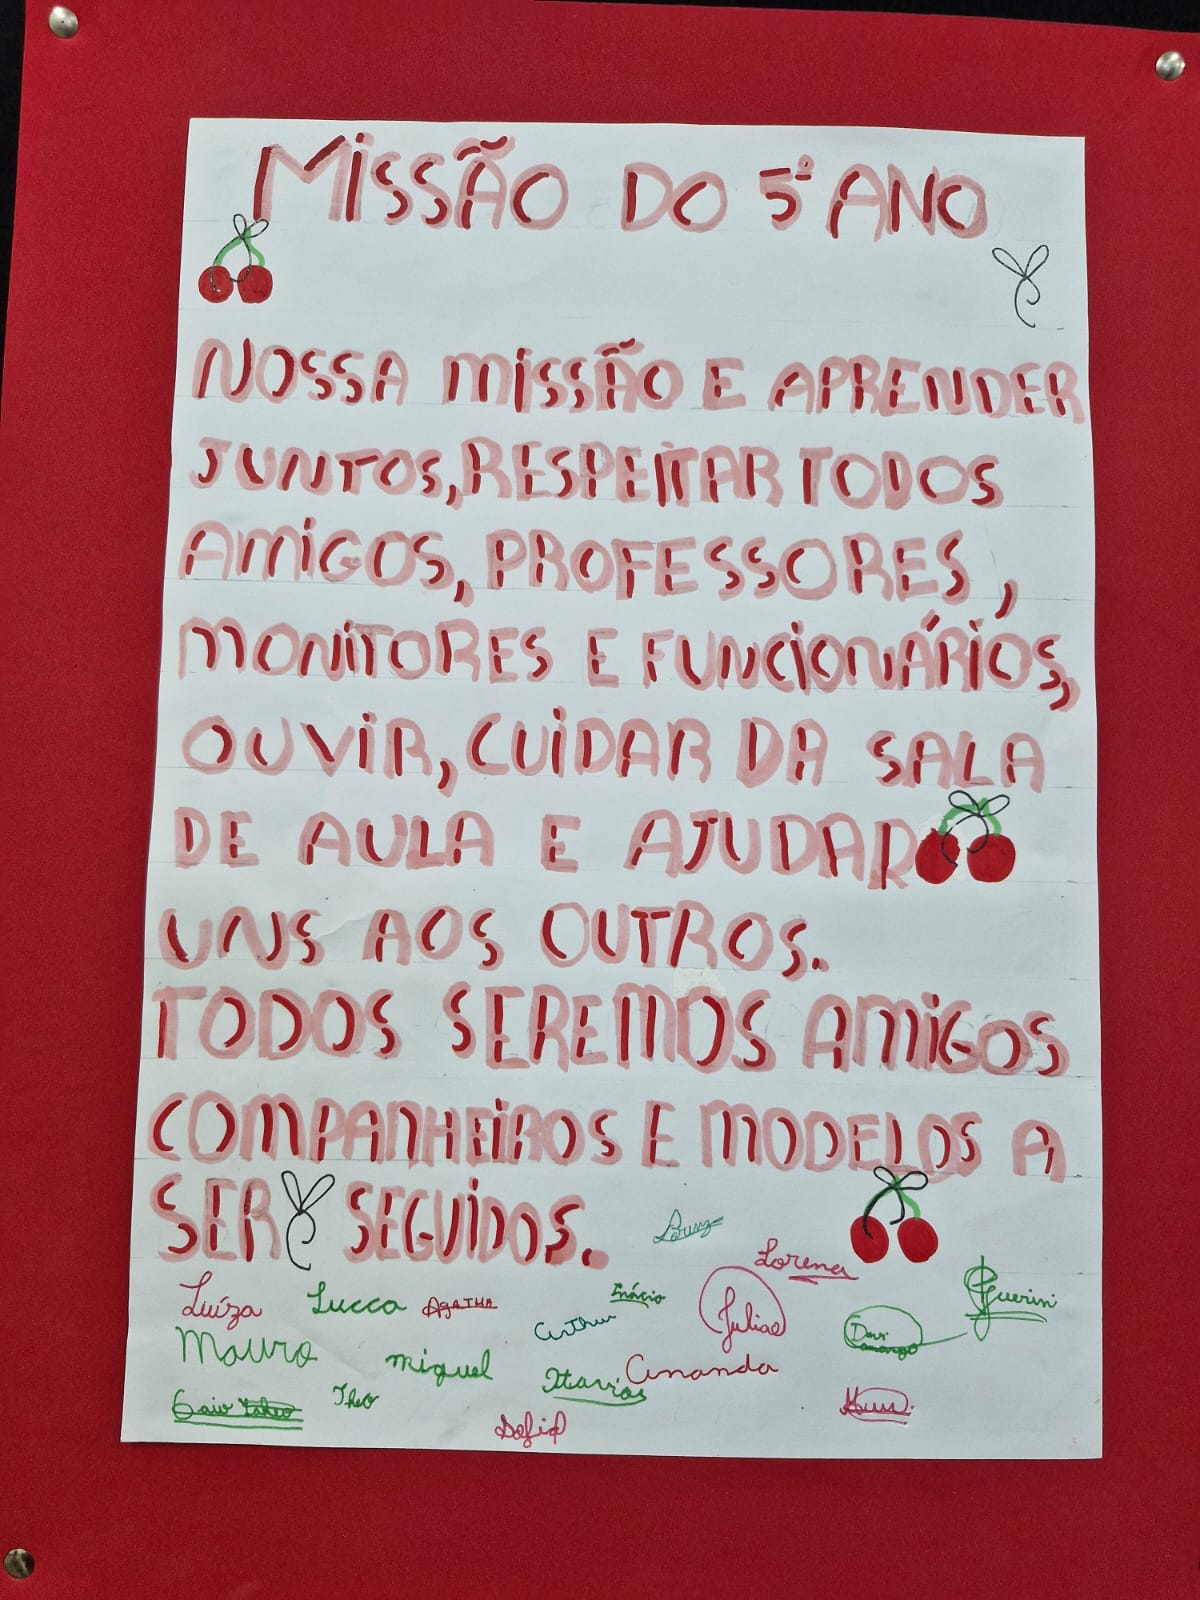 MISSÃO DO 5º ANO
NOSSA MISSÃO E APRENDER
JUNTOS, RESPEITAR TODOS
AMIGOS, PROFESSORES,
MONITORES E FUNCIONÁRIOS,
OUVIR, CUIDAR DA SALA
DE AULA E AJUDAR
UNS AOS OUTROS.
TODOS SEREMOS AMIGOS
COMPANHEIROS E MODELOS A
SER SEGUIDOS.
Lorena
Luiza Lucca AGATHA Inácio Julia Guerini
Mauro Miguel Arthur Ananda Davi Camargo
Theo Otavio
Sofia